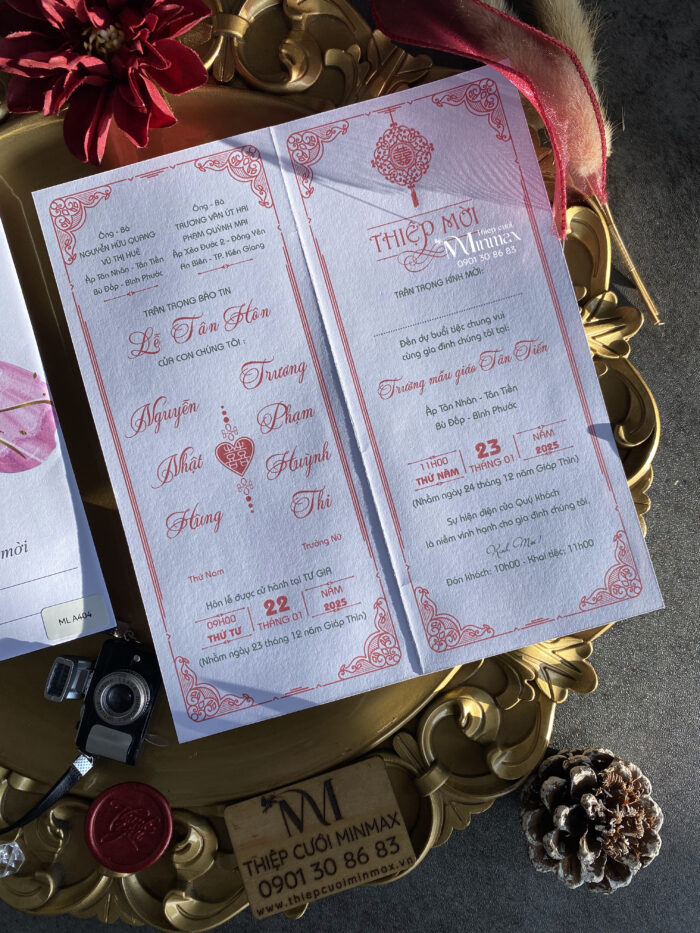 Ông - Bà
NGUYỄN HỮU QUANG
VŨ THỊ HUỆ
Ấp Tân Nhân - Tân Tiến
Bù Đốp - Bình Phước
Ông - Bà
TRƯƠNG VĂN ÚT HAI
PHẠM QUỲNH MAI
Ấp Xẻo Đước 2 - Đông Yên
An Biên - TP. Kiên Giang
TRÂN TRỌNG BÁO TIN
Lễ Tân Hôn
CỦA CON CHÚNG TÔI :
Nguyễn
Nhật
Hùng
Thứ Nam
Trương
Phạm
Huỳnh
Thi
Trưởng Nữ
Hôn lễ được cử hành tại TƯ GIA
09H00
THỨ TƯ
22
THÁNG 01
NĂM
2025
(Nhằm ngày 23 tháng 12 năm Giáp Thìn)
THIỆP MỜI
Thiệp cưới
Minmax
0901 30 86 83
TRÂN TRỌNG KÍNH MỜI:
Đến dự buổi tiệc chung vui
cùng gia đình chúng tôi tại:
Trường mẫu giáo Tân Tiến
Ấp Tân Nhân - Tân Tiến
Bù Đốp - Bình Phước
11H00
THỨ NĂM
23
THÁNG 01
NĂM
2025
(Nhằm ngày 24 tháng 12 năm Giáp Thìn)
Sự hiện diện của Quý khách
là niềm vinh hạnh cho gia đình chúng tôi.
Kính Mời !
Đón khách: 10h00 - Khai tiệc: 11h00
mời
ML A404
THIỆP CƯỚI MINMAX
0901 30 86 83
www.thiepcuoiminmax.vn